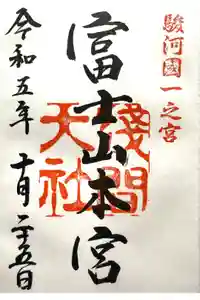 駿河國一之宮
富士山本宮
淺間大社
令和五年
十一月二十五日